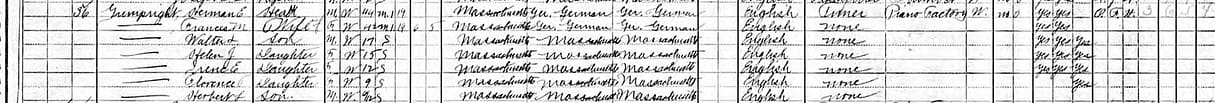 56 Gumpright, Herman E Head M W 44 M1 19 Massachusetts Ger. German Ger. German English Tuner Piano Factory W. no 0 Yes Yes R F H 3 6 5 9
—— Frances M Wife F W M1 19 6 5 Massachusetts Ger. German Ger. German English none Yes Yes
—— Walter L Son M W 17 S Massachusetts Massachusetts Massachusetts English none Yes Yes Yes
—— Helen J Daughter F W 15 S Massachusetts Massachusetts Massachusetts English none Yes Yes Yes
—— Irene E Daughter F W 12 S Massachusetts Massachusetts Massachusetts English none Yes Yes Yes
—— Florence Daughter F W 9 S Massachusetts Massachusetts Massachusetts English none Yes
—— Herbert L Son M W S Massachusetts Massachusetts Massachusetts English none